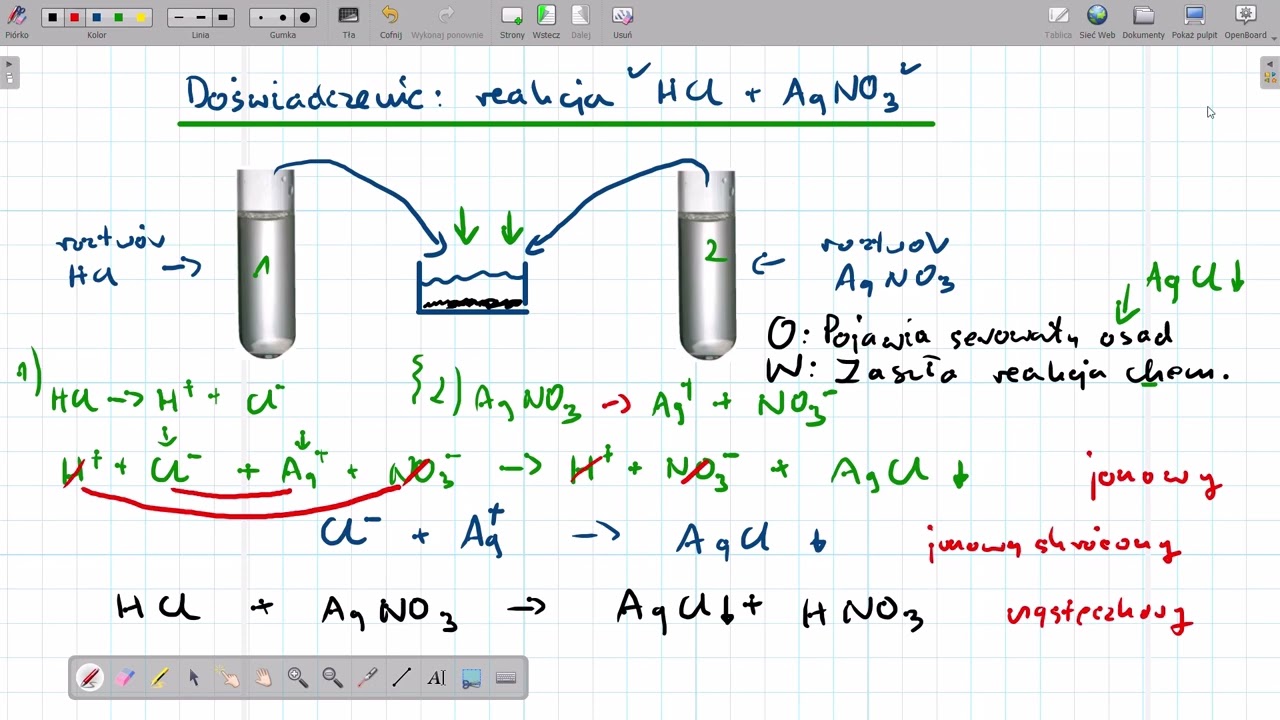 Piórko Kolor Linia Gumka Tła Cofnij Wykonaj ponownie Strony Wstecz Dalej Usuń Tablica Sieć Web Dokumenty Pokaż pulpit OpenBoard
Doświadczenie: reakcja HCl + AgNO₃
roztwór
HCl →
1
2
← roztwór
AgNO₃
AgCl↓
O: Pojawia serowaty osad
W: Zaszła reakcja chem.
1) HCl → H⁺ + Cl⁻
2) AgNO₃ → Ag⁺ + NO₃⁻
H⁺ + Cl⁻ + Ag⁺ + NO₃⁻ → H⁺ + NO₃⁻ + AgCl ↓ jonowy
Cl⁻ + Ag⁺ → AgCl ↓ jonowy skrócony
HCl + AgNO₃ → AgCl↓ + HNO₃ cząsteczkowy
AI